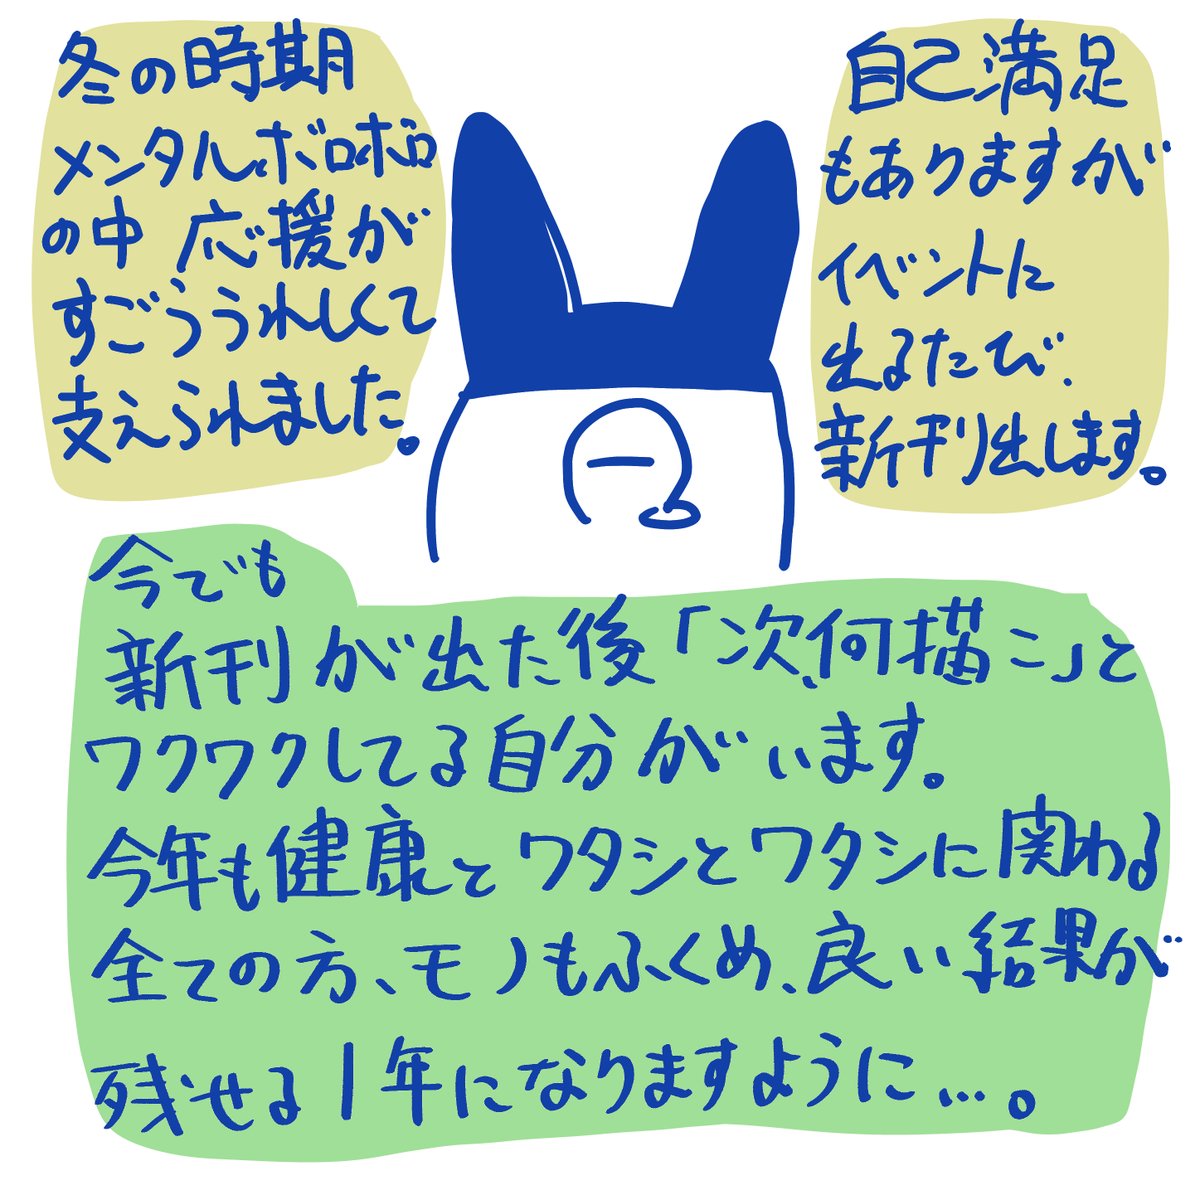 自己満足
もありますが
イベントに
出るたび、
新刊出します。
冬の時期
メンタルボロボロ
の中 応援が
すごううれしくて
支えられました。
今でも
新刊が出た後「次、何描こ」と
ワクワクしてる自分がいます。
今年も健康とワタシとワタシに関わる
全ての方、モノもふくめ、良い結果が
残せる1年になりますように…。